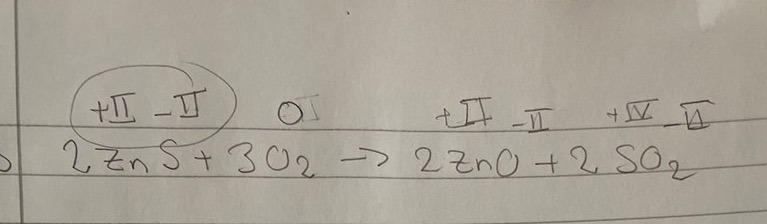 +II -II 0 +II -II +IV -II
2ZnS + 3O₂ → 2ZnO + 2SO₂